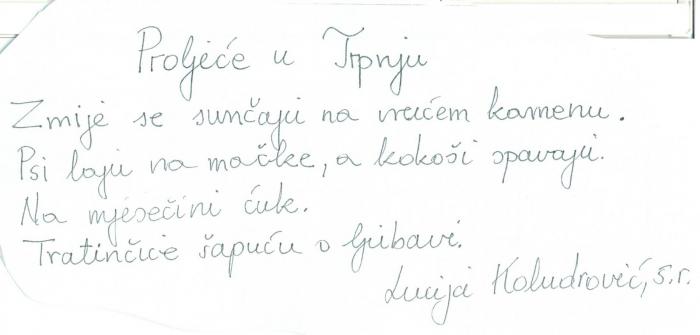 Proljeće u Trpnju
Zmije se sunčaju na vrućem kamenu.
Psi laju na mačke, a kokoši spavaju.
Na mjesečini ćuk.
Tratinčice šapuću o ljubavi.
Lucija Koludrović, 5.r.